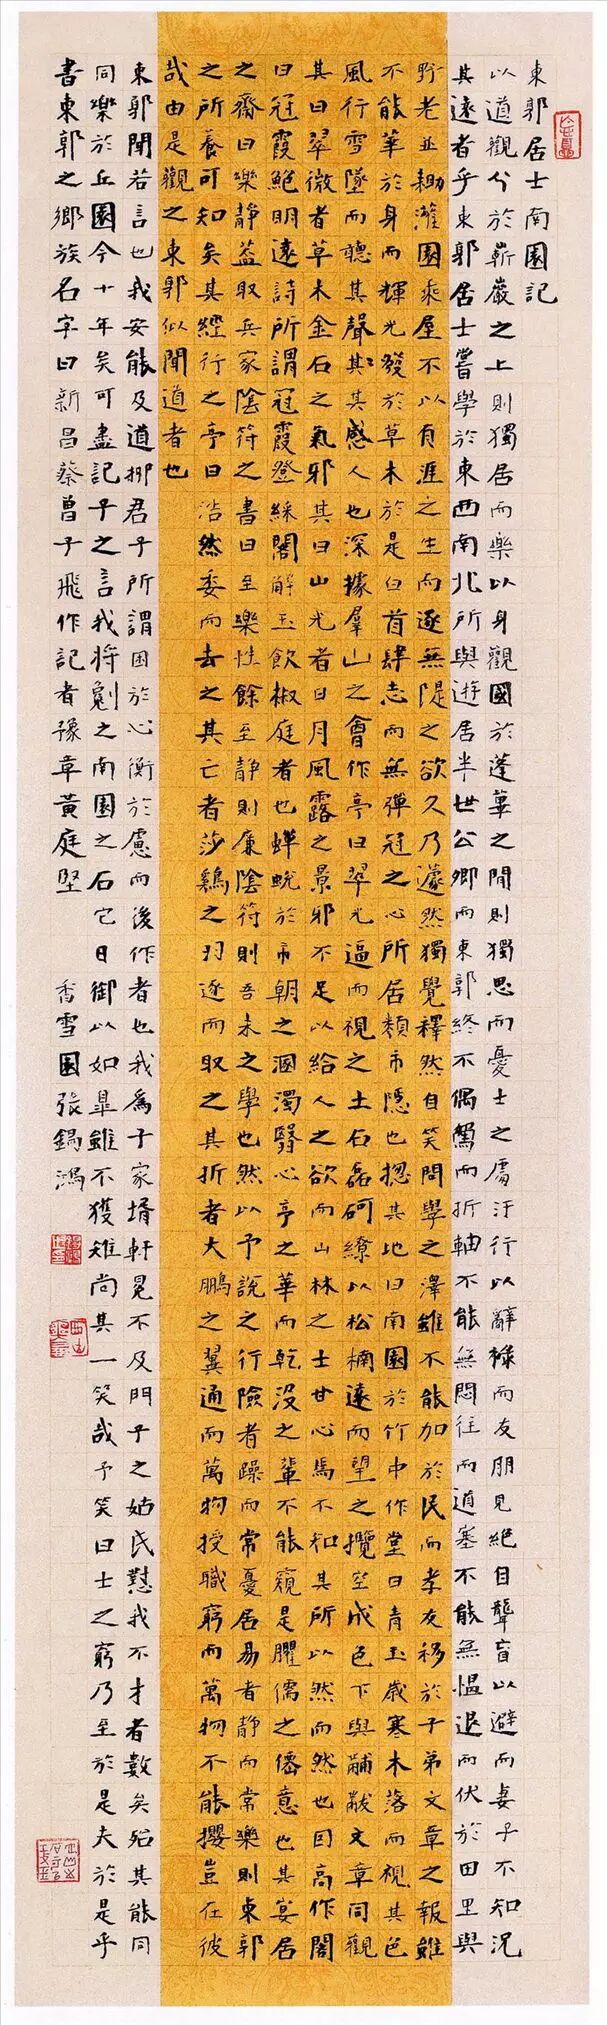 東郭居士南園記
以道觀兮於嶄巖之上則獨居而樂以身觀國於蓬蓽之間則獨思而憂士之處汙行以辭祿而友朋見絕自聾盲以避而妻子不知況
其遠者乎東郭居士嘗學於東西南北所與遊居半世公卿而東郭終不偶駕而折軸不能無悶往而道塞不能無慍退而伏於田里與
野老並鋤灌園乘屋不以有涯之生而逐無隄之欲久乃蘧然獨覺釋然自笑問學之澤雖不能加於民而孝友移於子弟文章之報雖
不能華於身而輝光發於草木於是白首肆志而無彈冠之心所居類市隱也揔其地曰南園於竹中作堂曰青玉歲寒木落而視其色
風行雪墜而聽其聲其其感人也深據羣山之會作亭曰翠光逼而視之土石磊砢繚以松楠遠而望之攬空成色下與黼黻文章同觀
其曰翠微者草木金石之氣邪其曰山光者日月風露之景邪不足以給人之欲而山林之士甘心焉不知其所以然而然也因高作閣
曰冠霞鮑明遠詩所謂冠霞登綵閣解玉飲椒庭者也蟬蛻於市朝之溷濁翳心亭之華而乾沒之輩不能窺是臞儒之僊意也其宴居
之齋曰樂靜蓋取兵家陰符之書曰至樂性餘至靜則廉陰符則吾未之學也然以予說之行險者躁而常憂居易者靜而常樂則東郭
之所養可知矣其經行之亭曰浩然委而去之其亡者莎鷄之羽逐而取之其折者大鵬之翼通而萬物授職窮而萬物不能攖豈在彼
哉由是觀之東郭似聞道者也
東郭聞若言也我安能及道抑君子所謂困於心衡於慮而後作者也我爲子家壻軒冕不及門子之姑氏懟我不才者數矣殆其能同
同樂於丘園今十年矣可盡記子之言我將劖之南園之石它日御以如皋雖不獲雉尚其一笑哉予笑曰士之窮乃至於是夫於是乎
書東郭之鄉族名字曰新昌蔡曾子飛作記者豫章黃庭堅 香雪園張錫鴻